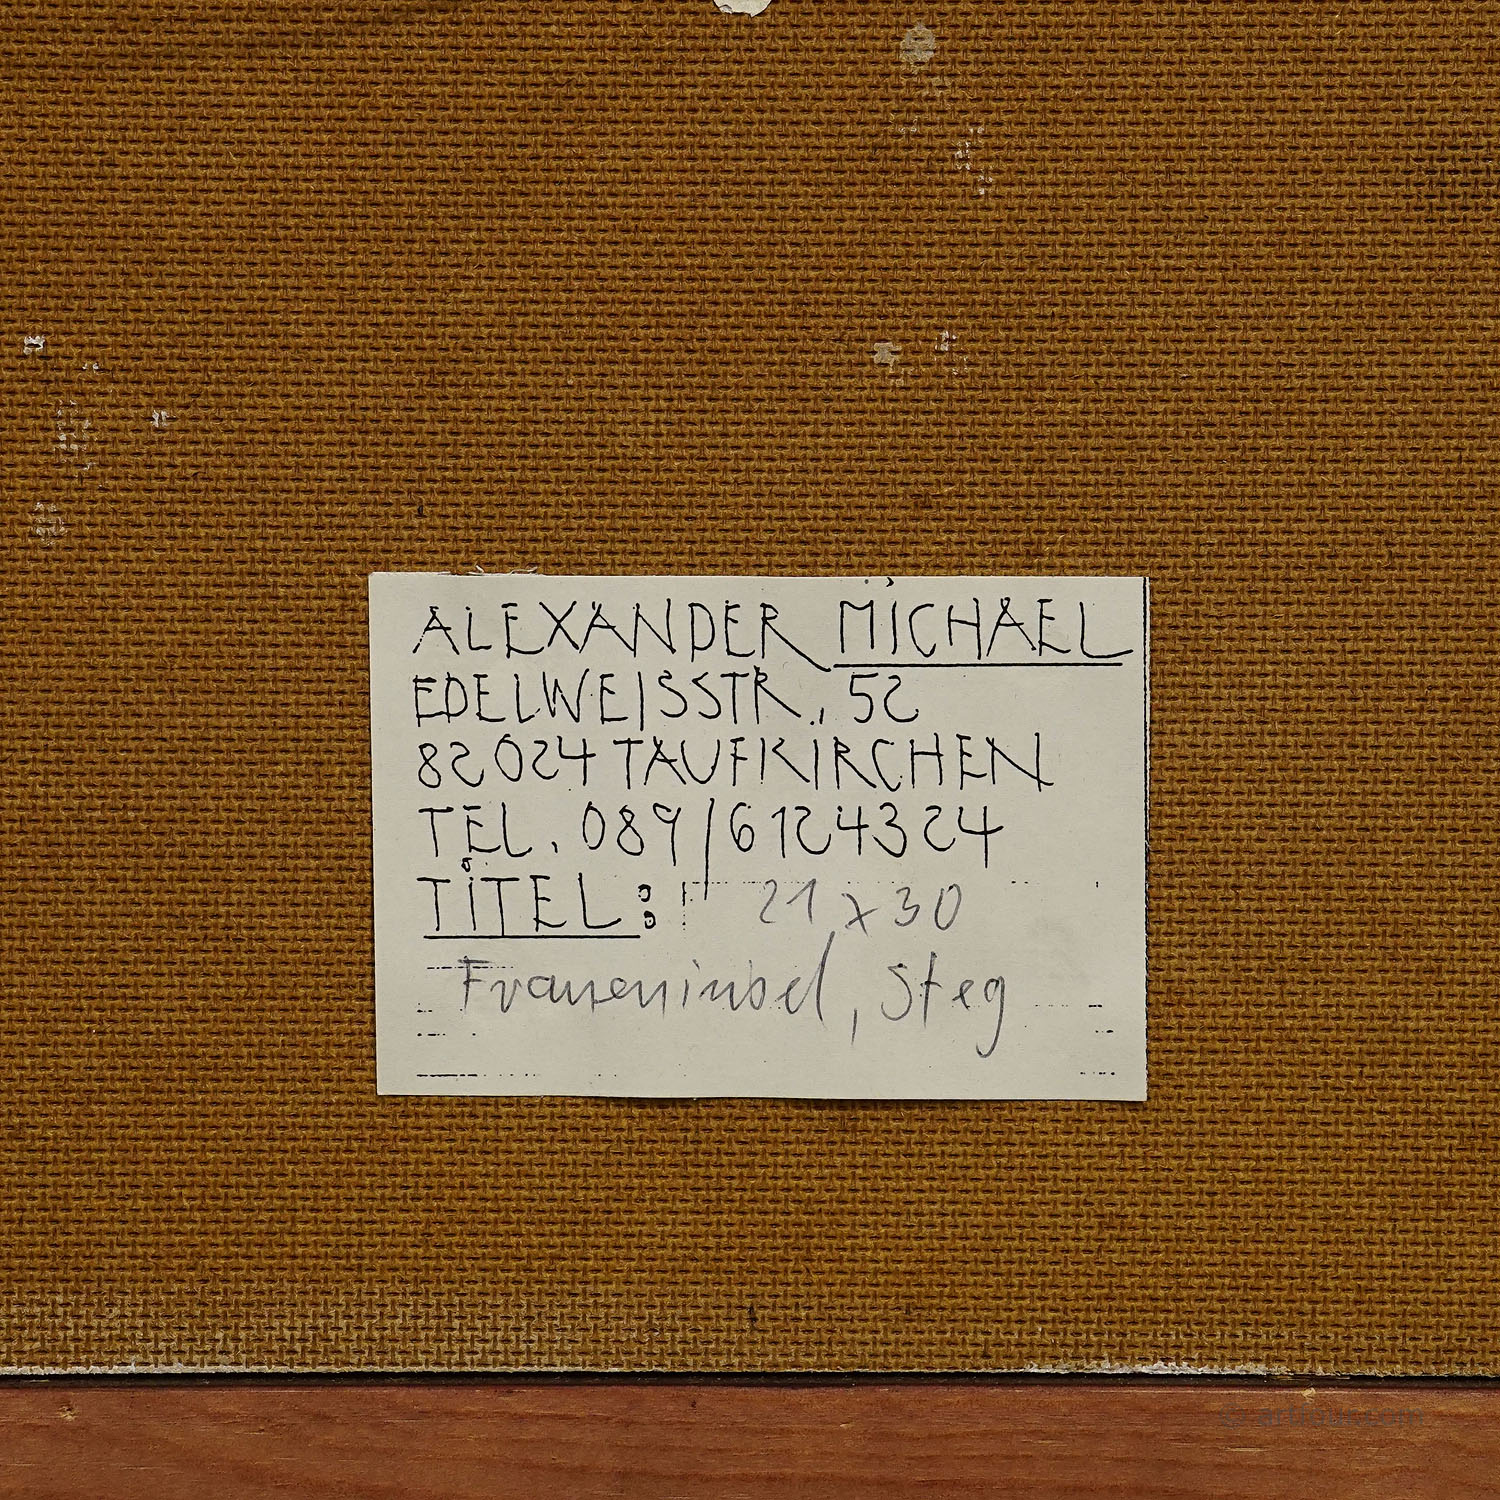 ALEXANDER MICHAEL
EDELWEISSTR. 52
82024 TAUFKIRCHEN
TEL. 089/6124324
TITEL: 21 x 30
Fraueninsel, Steg
© artfour.com